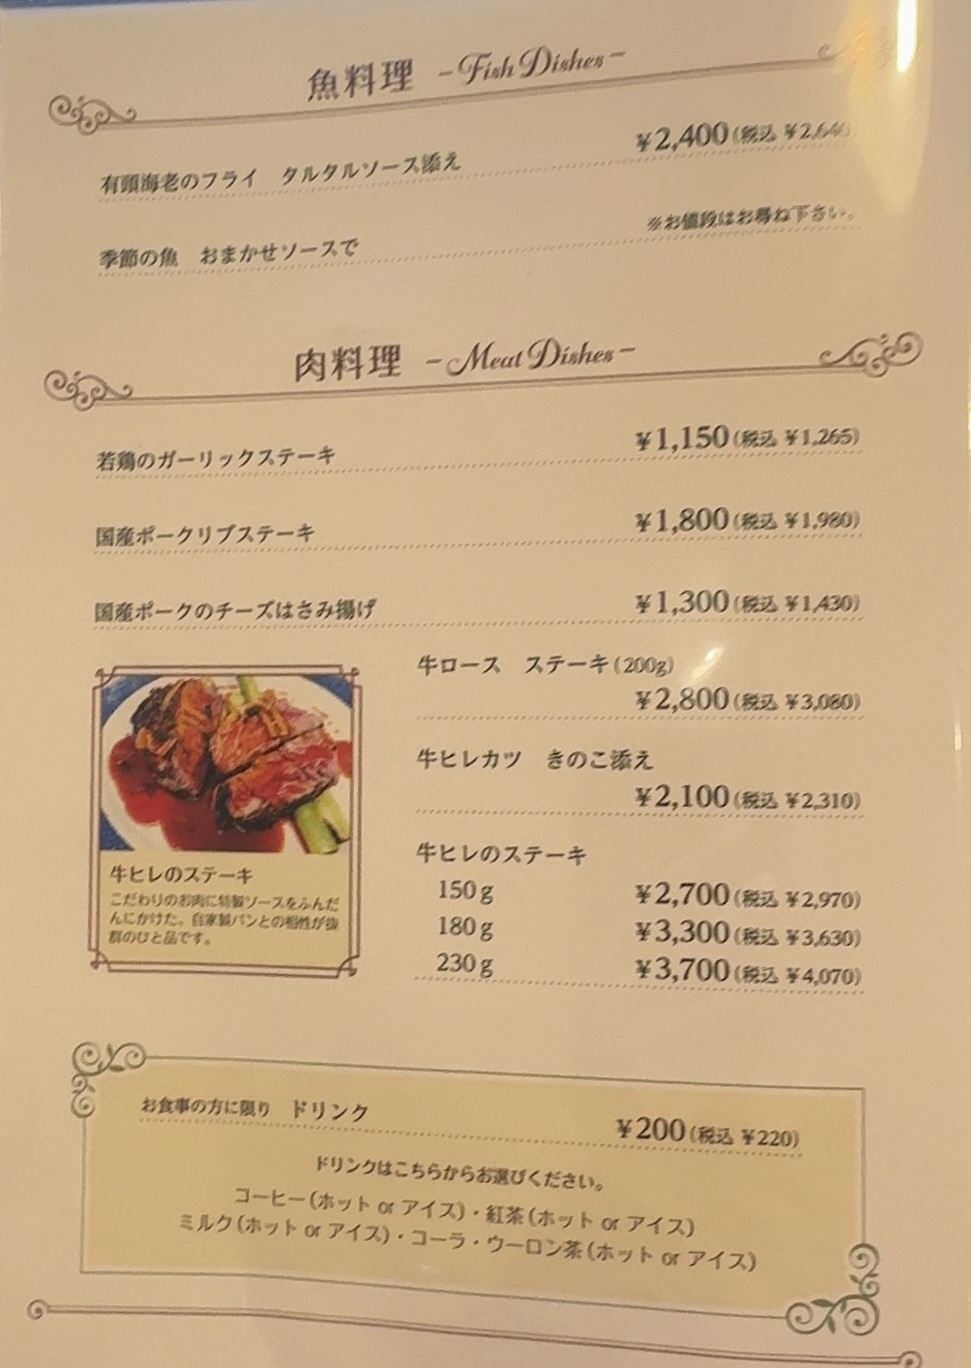 魚料理 -Fish Dishes-
有頭海老のフライ タルタルソース添え ¥2,400(税込 ¥2,640)
季節の魚 おまかせソースで ※お値段はお尋ね下さい。
肉料理 -Meat Dishes-
若鶏のガーリックステーキ ¥1,150(税込 ¥1,265)
国産ポークリブステーキ ¥1,800(税込 ¥1,980)
国産ポークのチーズはさみ揚げ ¥1,300(税込 ¥1,430)
牛ロース ステーキ(200g)
¥2,800(税込 ¥3,080)
牛ヒレカツ きのこ添え
¥2,100(税込 ¥2,310)
牛ヒレのステーキ
150g ¥2,700(税込 ¥2,970)
180g ¥3,300(税込 ¥3,630)
230g ¥3,700(税込 ¥4,070)
牛ヒレのステーキ
こだわりのお肉に特製ソースをふんだ
んにかけた。自家製パンとの相性が抜
群のひと品です。
お食事の方に限り ドリンク ¥200(税込 ¥220)
ドリンクはこちらからお選びください。
コーヒー(ホット or アイス)・紅茶(ホット or アイス)
ミルク(ホット or アイス)・コーラ・ウーロン茶(ホット or アイス)